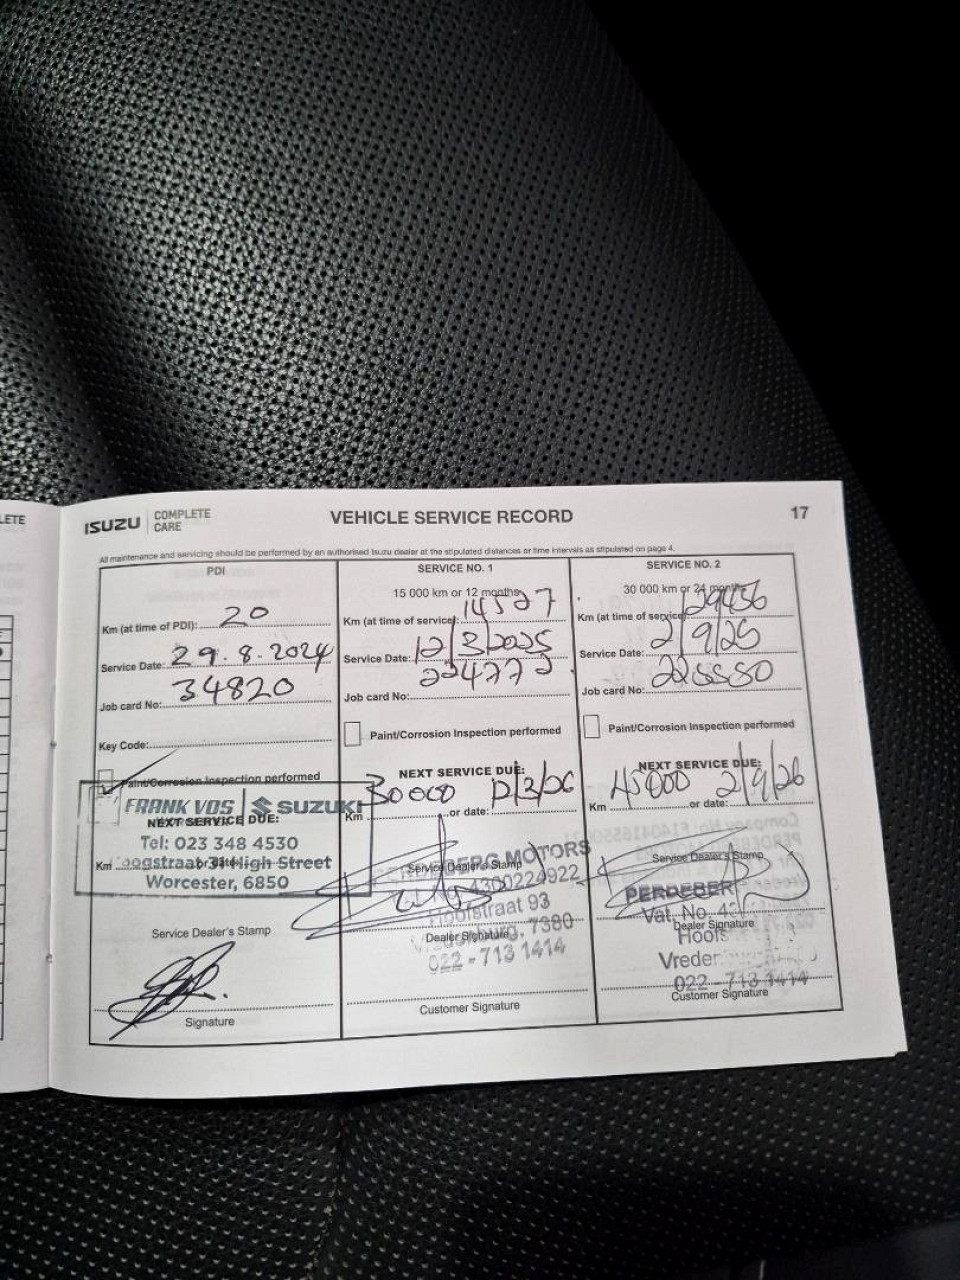 LETE
ISUZU COMPLETE CARE
VEHICLE SERVICE RECORD
17
All maintenance and servicing should be performed by an authorised Isuzu dealer at the stipulated distances or time intervals as stipulated on page 4.
PDI
Km (at time of PDI): 20
Service Date: 29.8.2024
Job card No: 34820
Key Code:
Paint/Corrosion Inspection performed
FRANK VOS SUZUKI
NEXT SERVICE DUE:
Tel: 023 348 4530
Km or date:
High Street
Worcester, 6850
Service Dealer's Stamp
Signature
SERVICE NO. 1
15 000 km or 12 months
Km (at time of service): 14527
Service Date: 12/3/2025
Job card No:
Paint/Corrosion Inspection performed
NEXT SERVICE DUE:
Km 30000 or date: 12/3/26
MOTORS
Service Dealer's Stamp
4300224922
Hoofstraat 93
Dealer Signature
7380
022 - 713 1414
Customer Signature
SERVICE NO. 2
30 000 km or 24 months
Km (at time of service): 29456
Service Date: 2/9/25
Job card No:
Paint/Corrosion Inspection performed
NEXT SERVICE DUE:
Km 45000 or date: 2/9/26
Service Dealer's Stamp
PERDEBER
Vat. No. 43
Dealer Signature
Hoofs
Vreder
022 - 713 1414
Customer Signature